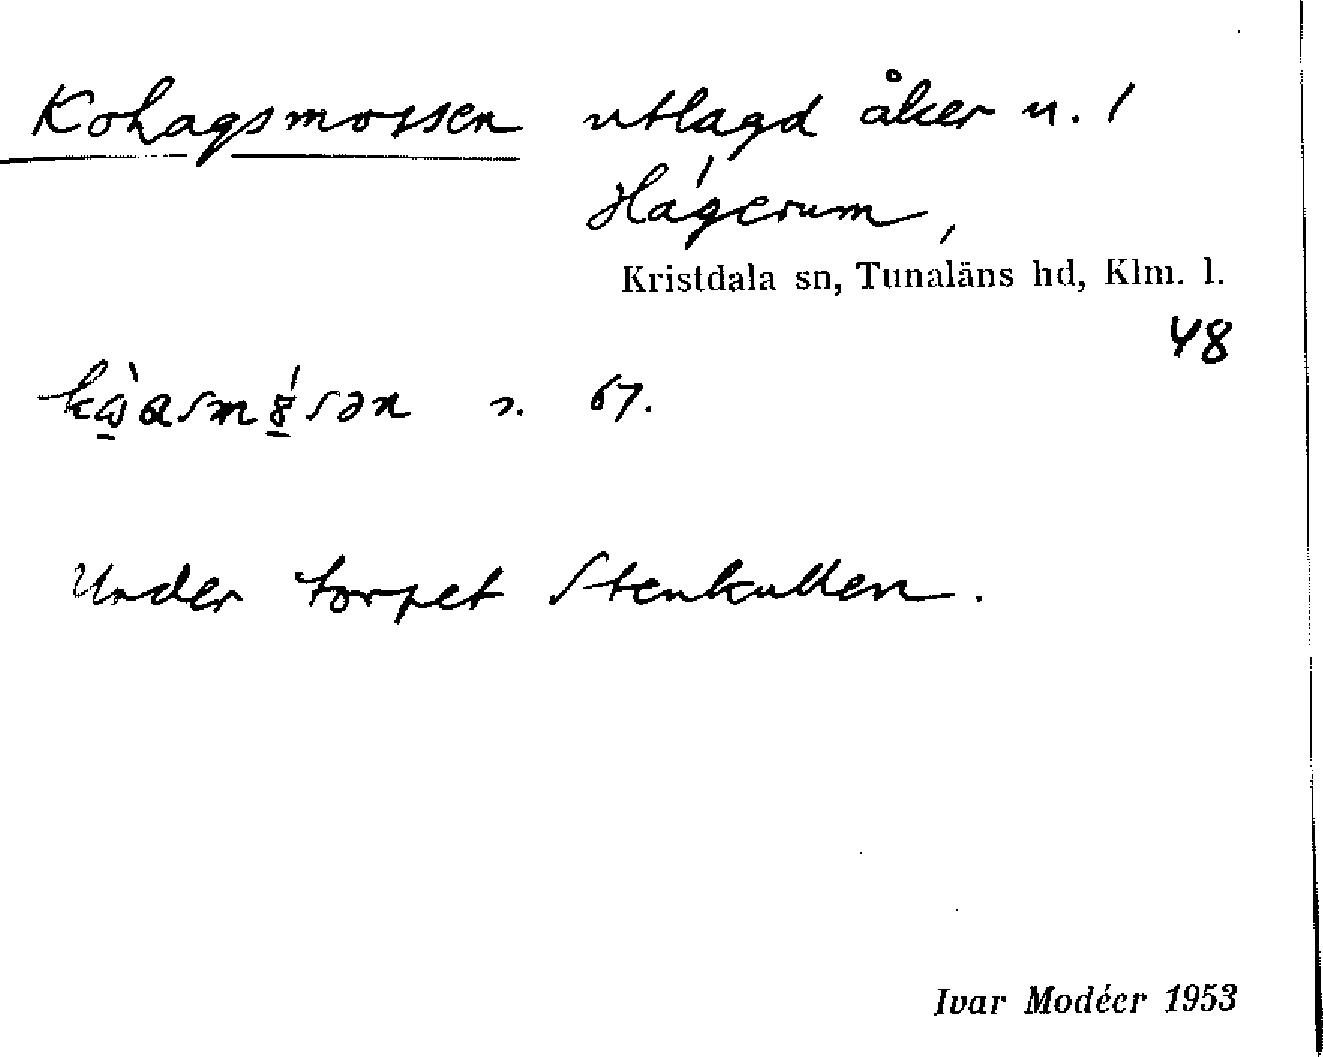 Kohagsmossen utlagd åker u. 1
Hágerum,
Kristdala sn, Tunaläns hd, Klm. l.
48
s. 67.
Under torpet Stenkullen.
Ivar Modéer 1953